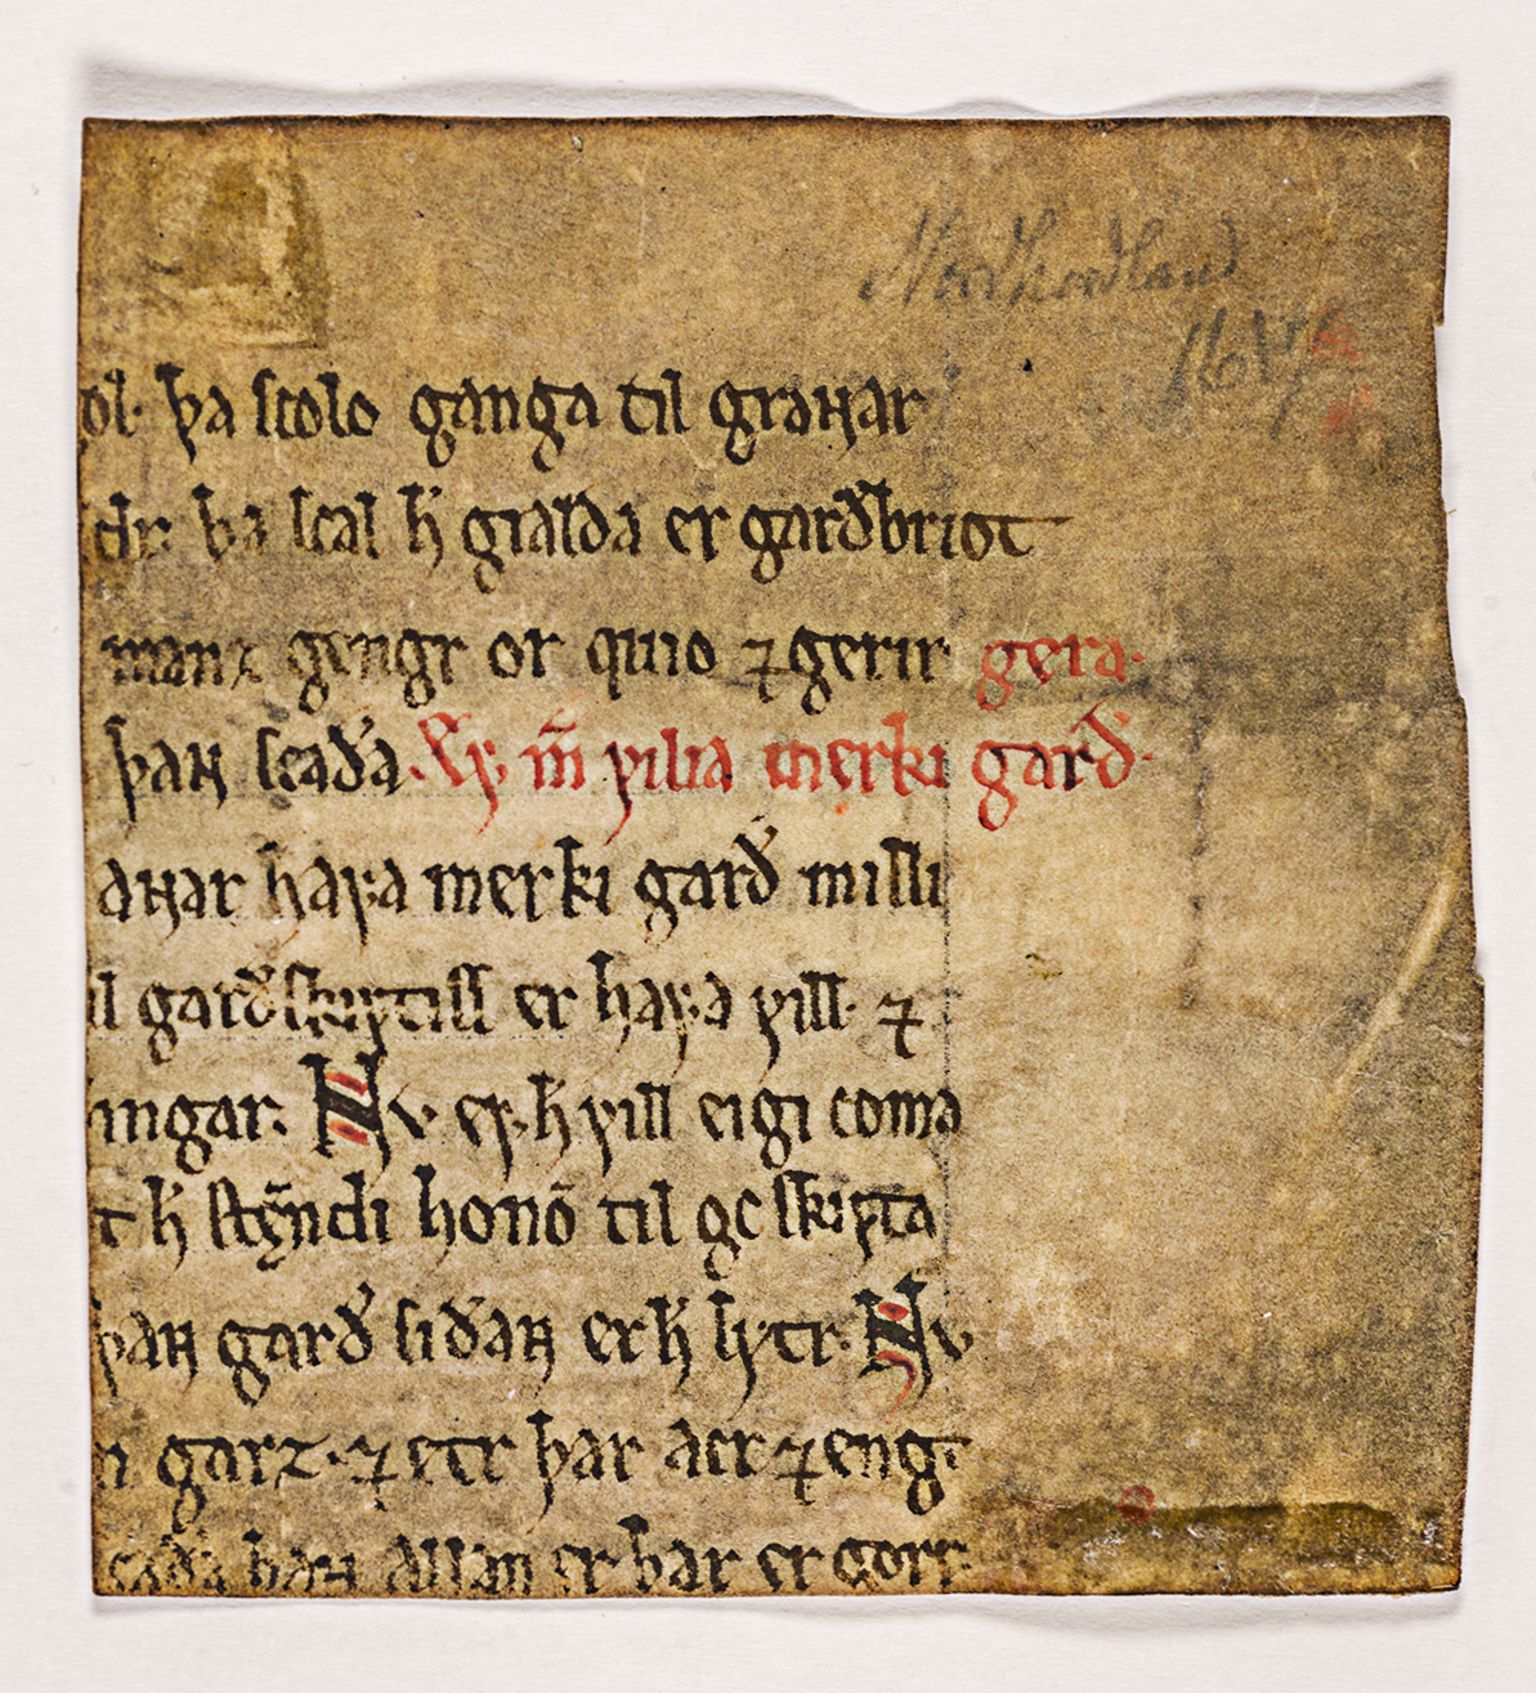 Northordland
ol· þa scolo ganga til graɴar
þa scal h̄ gialda er garðbrıst
manz gengr or quio ⁊ gerir gera·
þaɴ scaða. Eꝼ m̄ ꝩilia merki garð·
aɴar haꝼa merki garð milli
il garðſkiptiſſ er haꝼa ꝩill· ⁊
ingar. Nv eꝼ h̄ ꝩill eigi coma
t h̄ ſteꝼndi honō til oc ſkipta
þaɴ garð ſiðaɴ er h̄ lyſtr. Nv
n garz· ⁊ etr þar acr ⁊ eng·
scaða þaɴ allan er þar er gorr·